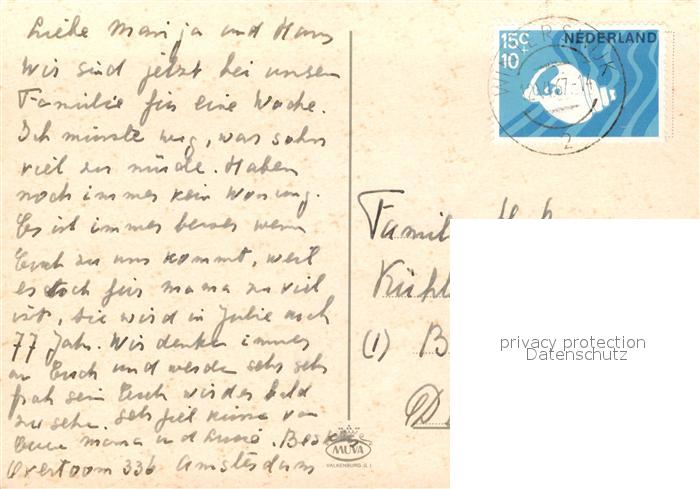 Liebe Marija und Hans
Wir sind jetzt bei unsen
Familie für eine Woche.
Ich müsste weg, war sehr
viel zu müde. Haben
noch immer kein Wonung.
Es ist immer besser wenn
Euch zu uns kommt, weil
es doch für mama zu viel
ist, sie wird in Julie auch
77 Jahr. Wir denken immer
an Euch und werden sehr sehr
froh sein Euch wieder bald
zu sehn. Sehr fiel küsse von
Eure mama und
Overtoom 336 Amsterdam
MUVA
VALKENBURG (L.)
15c
+
10
NEDERLAND
2
Famil
Kühl
(1) B
D
privacy protection
Datenschutz